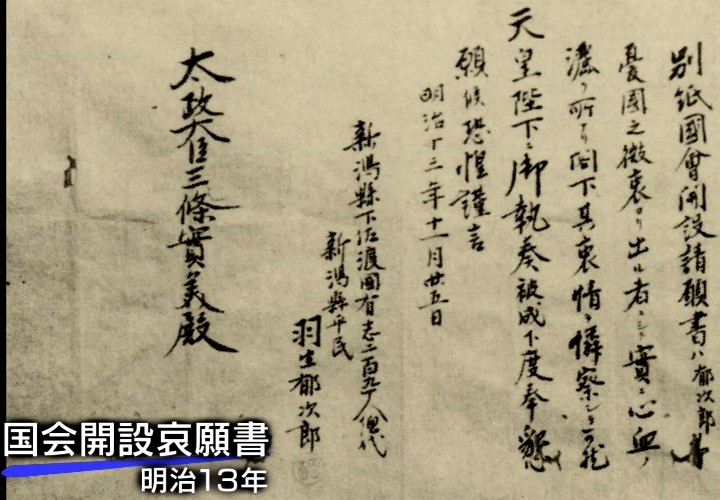 別紙國會開設請願書ハ郁次郎等
憂國之微衷ヨリ出ル者ニシテ實ニ心血ノ
濺ク所ナリ閣下其衷情ヲ憐察シ可然
天皇陛下ニ御執奏被成下度奉懇
願候恐惶謹言
明治十三年十一月廿五日
新潟縣下佐渡國有志二百九十人惣代
新潟縣平民
羽生郁次郎
太政大臣三條實美殿
国会開設哀願書
明治13年